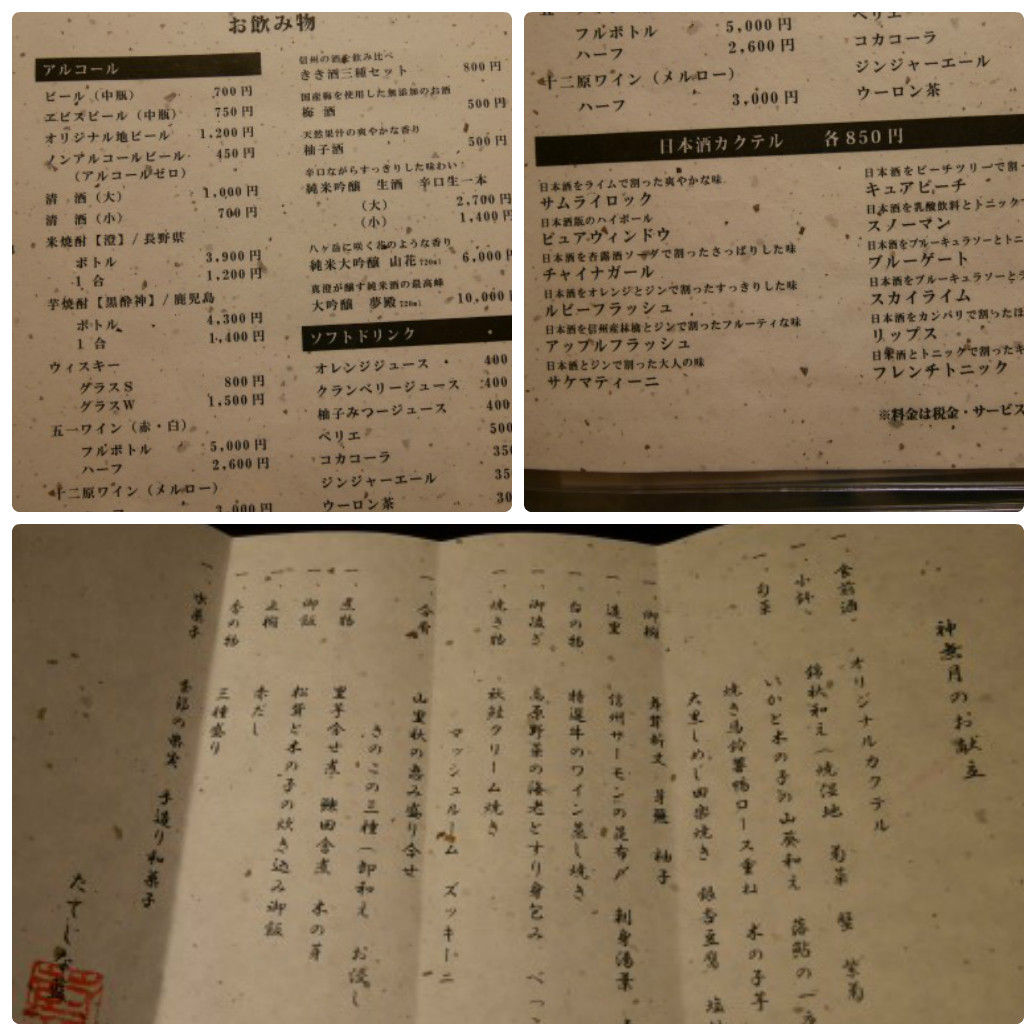 お飲み物
アルコール
ビール（中瓶） 700円
ヱビスビール（中瓶） 750円
オリジナル地ビール 1,200円
ノンアルコールビール 450円
（アルコールゼロ）
清　酒（大） 1,000円
清　酒（小） 700円
米焼酎【澄】/長野県
ボトル 3,900円
1 合 1,200円
芋焼酎【黒酔神】/鹿児島
ボトル 4,300円
1 合 1,400円
ウィスキー
グラスS 800円
グラスW 1,500円
五一ワイン（赤・白）
フルボトル 5,000円
ハーフ 2,600円
十二原ワイン（メルロー）
ハーフ 3,000円
信州の酒を飲み比べ
きき酒三種セット 800円
国産梅を使用した無添加のお酒
梅 酒 500円
天然果汁の爽やかな香り
柚子酒 500円
辛口ながらすっきりした味わい
純米吟醸　生酒　辛口生一本
（大） 2,700円
（小） 1,400円
八ヶ岳に咲く花のような香り
純米大吟醸 山花720ml 6,000円
真澄が醸す純米酒の最高峰
大吟醸　夢殿720ml 10,000
ソフトドリンク
オレンジジュース 400
クランベリージュース 400
柚子みつージュース 400
ペリエ 500
コカコーラ 350
ジンジャーエール 35
ウーロン茶 30
フルボトル 5,000円
ハーフ 2,600円
十二原ワイン（メルロー）
ハーフ 3,000円
ペリエ
コカコーラ
ジンジャーエール
ウーロン茶
日本酒カクテル　各850円
日本酒をライムで割った爽やかな味
サムライロック
日本酒版のハイボール
ピュアウィンドウ
日本酒を杏露酒ソーダで割ったさっぱりした味
チャイナガール
日本酒をオレンジとジンで割ったすっきりした味
ルビーフラッシュ
日本酒を信州産林檎とジンで割ったフルーティな味
アップルフラッシュ
日本酒とジンで割った大人の味
サケマティーニ
日本酒をピーチツリーで割っ
キュアピーチ
日本酒を乳酸飲料とトニック
スノーマン
日本酒をブルーキュラソーとトニ
ブルーゲート
日本酒をブルーキュラソーとラ
スカイライム
日本酒をカンパリで割ったほ
リップス
日本酒とトニックで割ったキ
フレンチトニック
※料金は税金・サービス
神無月のお献立
一、食前酒　オリジナルカクテル
一、小鉢　錦秋和え（焼湿地　菊菜　蟹　紫菊
いかと木の子の山葵和え　落鮎の一夜
一、旬菜　焼き馬鈴薯鴨ロース重ね　木の子芋
大黒しめじ田楽焼き　銀杏豆腐　塩
一、御椀　舞茸新丈　芽蕪　柚子
一、造里　信州サーモンの昆布〆　刺身湯葉
一、台の物　特選牛のワイン蒸し焼き
一、御凌ぎ　高原野菜の海老とすり身包み　べっこ
一、焼き物　秋鮭クリーム焼き
マッシュルーム　ズッキーニ
一、合肴　山里秋の恵み盛り合せ
きのこの三種（卸和え　お浸し
一、煮物　里芋含せ煮　鰊田舎煮　木の芽
一、御飯　松茸と木の子の炊き込み御飯
一、止椀　赤だし
一、香の物　三種盛り
一、水菓子　季節の果実　手造り和菓子
たてしな